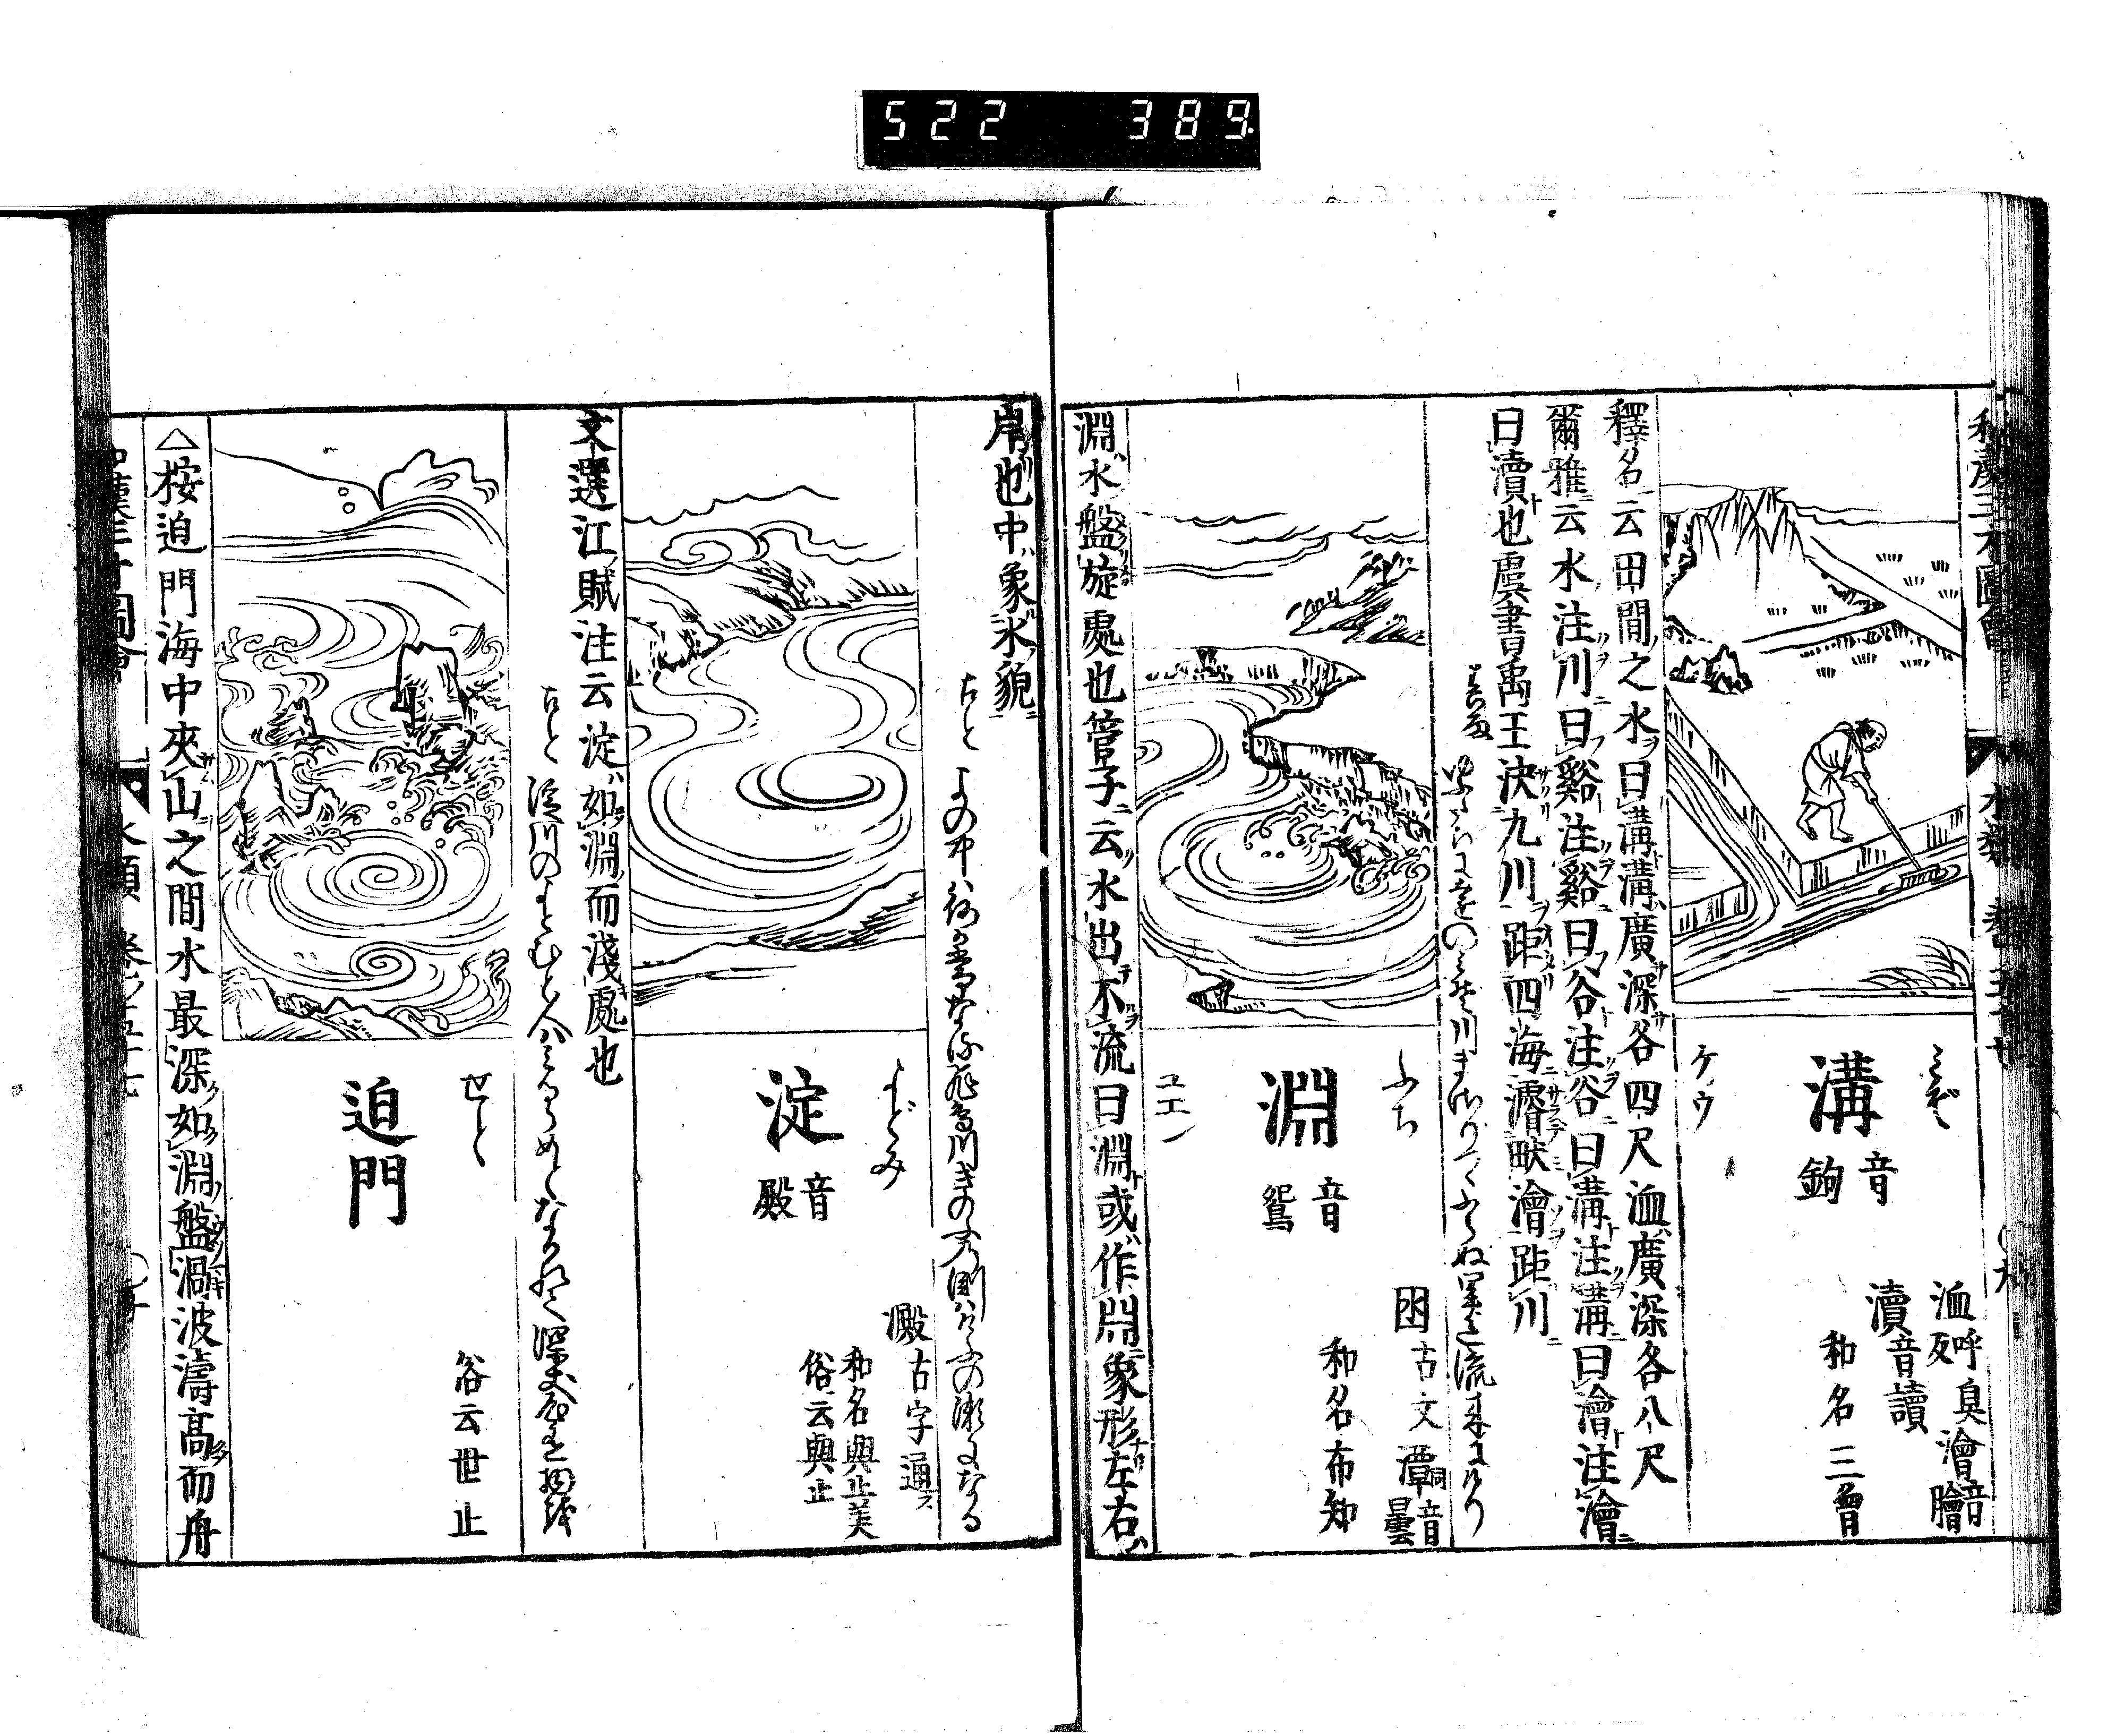 522 389
和漢三才圖會
水類
みぞ
溝
音鉤
ケウ
洫 呼臭反
澮 音膾
瀆 音讀
和名三曾
釋名云田間之水曰溝溝廣深各四尺洫廣深各八尺
爾雅云水注川曰谿注谿曰谷注谷曰溝注溝曰澮注澮
曰瀆也虞書禹王決九川距四海濬畎澮距川
ふち
淵
音鴛
ユエン
囦 古文
潭 音曇
和名布知
淵水盤旋處也管子云水出不流曰淵或作𣶒象形左右
岸也中象水貌
古今 よの中は何か常なる飛鳥川きのふの淵はけふの瀬になる
よどみ
淀
音殿
澱 古字通
和名與止美
俗云與止
文選江賦注云淀如淵而淺處也
古今 淀川のよどむと人はみるらめどながれて深き心ある物を
せと
迫門
俗云世止
△按迫門海中夾山之間水最深如淵盤渦波濤高而舟
和漢三才圖會
水類 卷ノ五十七